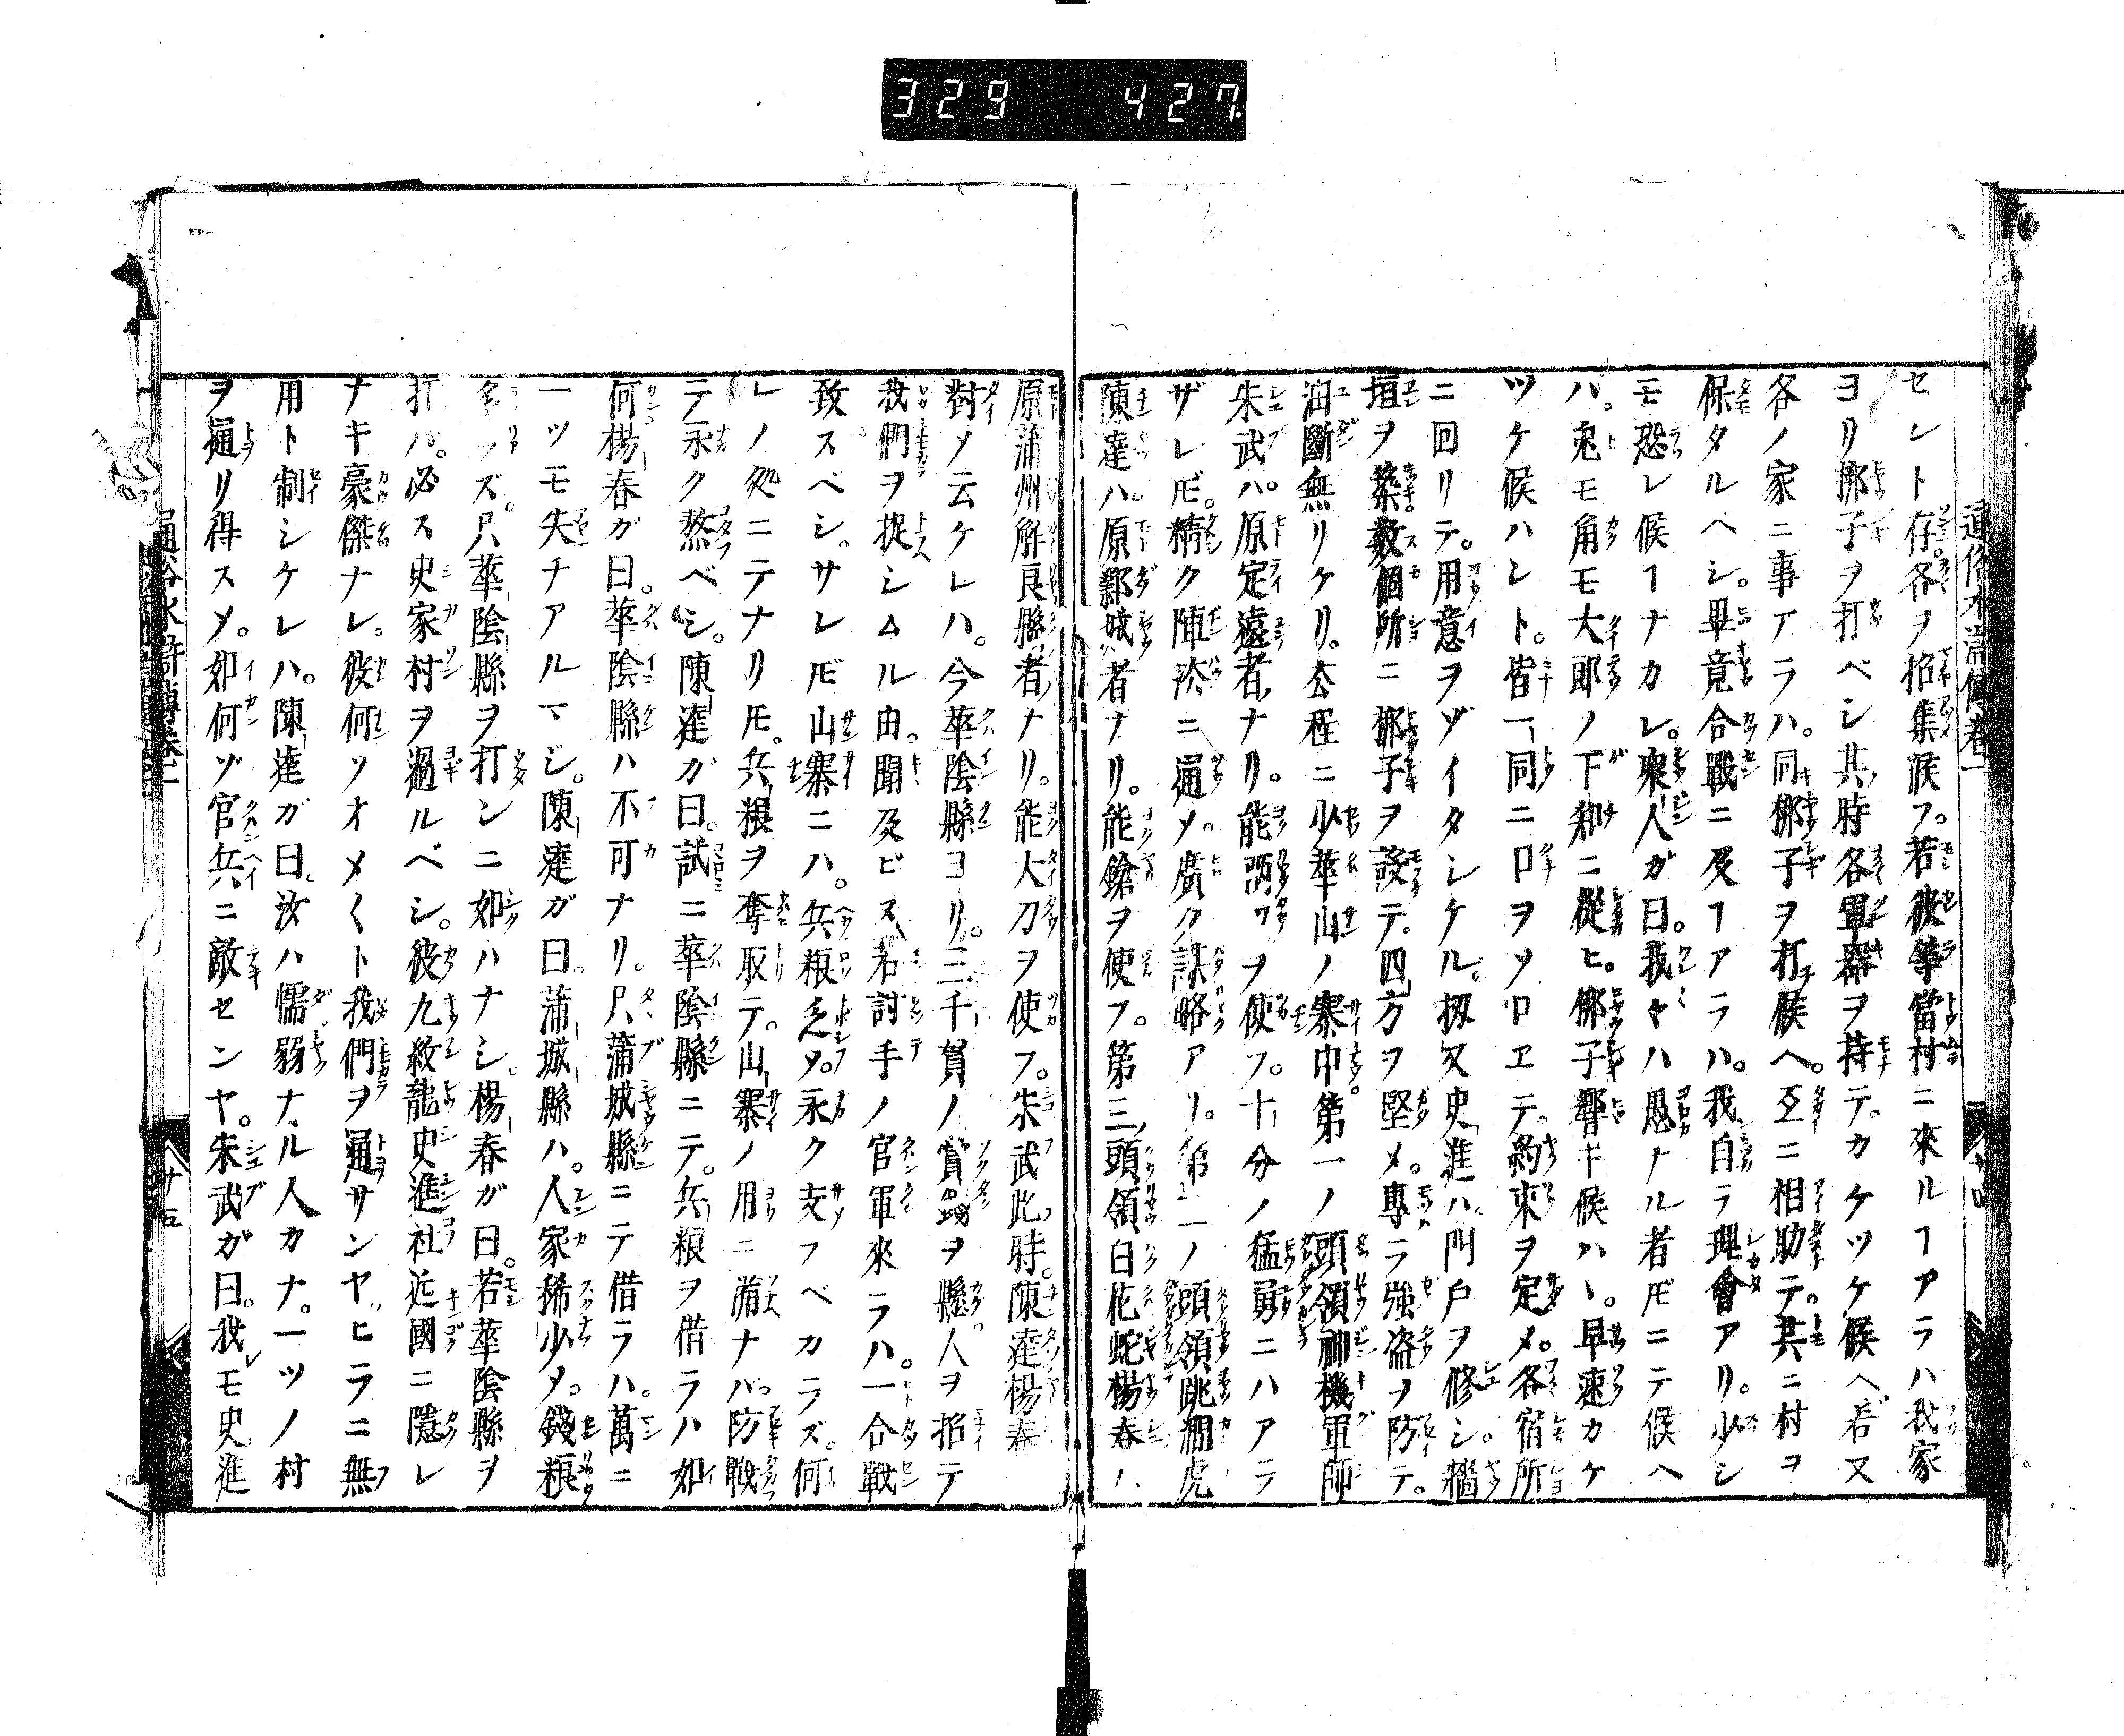 329 427
セント存。各ヲ招集候フ。若彼等當村ニ來ルヿアラハ我家
ヨリ梆子ヲ打ベシ其時各軍器ヲ持テ。カケツケ候ヘ。若又
各ノ家ニ事アラハ。同梆子ヲ打候ヘ。互ニ相助テ。共ニ村ヲ
保タルヘシ。畢竟合戰ニ及ヿアラハ。我自ラ理會アリ。少シ
モ恐レ候ヿナカレ。衆人ガ曰。我々ハ愚ナル者𪜈ニテ候ヘ
ハ。兎モ角モ大郎ノ下知ニ從ヒ。梆子響キ候ハヽ。早速カケ
ツケ候ハント。皆一同ニ口ヲソロエテ。約束ヲ定メ。各宿所
ニ回リテ。用意ヲゾイタシケル。扨又史進ハ門戸ヲ修シ。牆
垣ヲ築。數個所ニ梆子ヲ設テ。四方ヲ堅メ。專ラ強盗ヲ防テ。
油斷無リケリ。去程ニ少華山ノ寨中第一ノ頭領神機軍師
朱武ハ。原定遠者ナリ。能兩刀ヲ使フ。十分ノ猛勇ニハアラ
ザレ𪜈。精ク陣法ニ通メ。廣ク謀略アリ。第二ノ頭領跳澗虎
陳達ハ原鄴城者ナリ。能鎗ヲ使フ。第三頭領白花蛇楊春ハ
原蒲州解良縣者ナリ。能大刀ヲ使フ。朱武此時。陳達楊春
對メ云ケレハ。今華陰縣ヨリ。三千貫ノ賞錢ヲ縣。人ヲ招テ
我們ヲ捉シムル由。聞及ビス。若討手ノ官軍來ラハ。一合戰
致スベシ。サレ𪜈山寨ニハ。兵粮乏メ。永ク支フベカラズ。何
レノ処ニテナリ𪜈。兵粮ヲ奪取テ。山寨ノ用ニ備ナバ。防戰
テ永ク熬ベシ。陳達ガ曰。試ニ華陰縣ニテ。兵粮ヲ借ラハ如
何。楊春ガ曰。華陰縣ハ不可ナリ。只蒲城縣ニテ借ラハ。萬ニ
一ツモ失チアルマジ。陳達ガ曰。蒲城縣ハ。人家稀少メ。錢粮
多カラズ。只華陰縣ヲ打ンニ如ハナシ。楊春ガ曰。若華陰縣ヲ
打バ。必ス史家村ヲ過ルベシ。彼九紋龍史進社近國ニ隱レ
ナキ豪傑ナレ。彼何ソオメ〱ト我們ヲ通サンヤ。ヒラニ無
用ト制シケレハ。陳達ガ曰。汝ハ懦弱ナル人カナ。一ツノ村
ヲ通リ得スメ。如何ゾ官兵ニ敵センヤ。朱武ガ曰。我モ史進
通俗水滸傳卷二
廿五